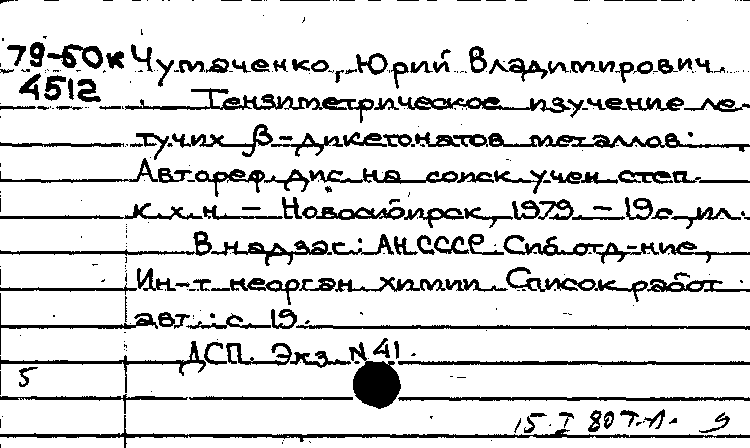 79-50к Чумаченко, Юрий Владимирович.
4512 Тензиметрическое изучение ле-
тучих β-дикетонатов металлов:
Автореф. дис. на соиск. учен. степ.
к. х. н. - Новосибирск, 1979. - 19с., ил.
В надзаг.: АН СССР. Сиб. отд-ние,
Ин-т неорган. химии. Список работ
авт.: с. 19.
ДСП. Экз. N 41.
5
15. I 80 Т.Л. 9